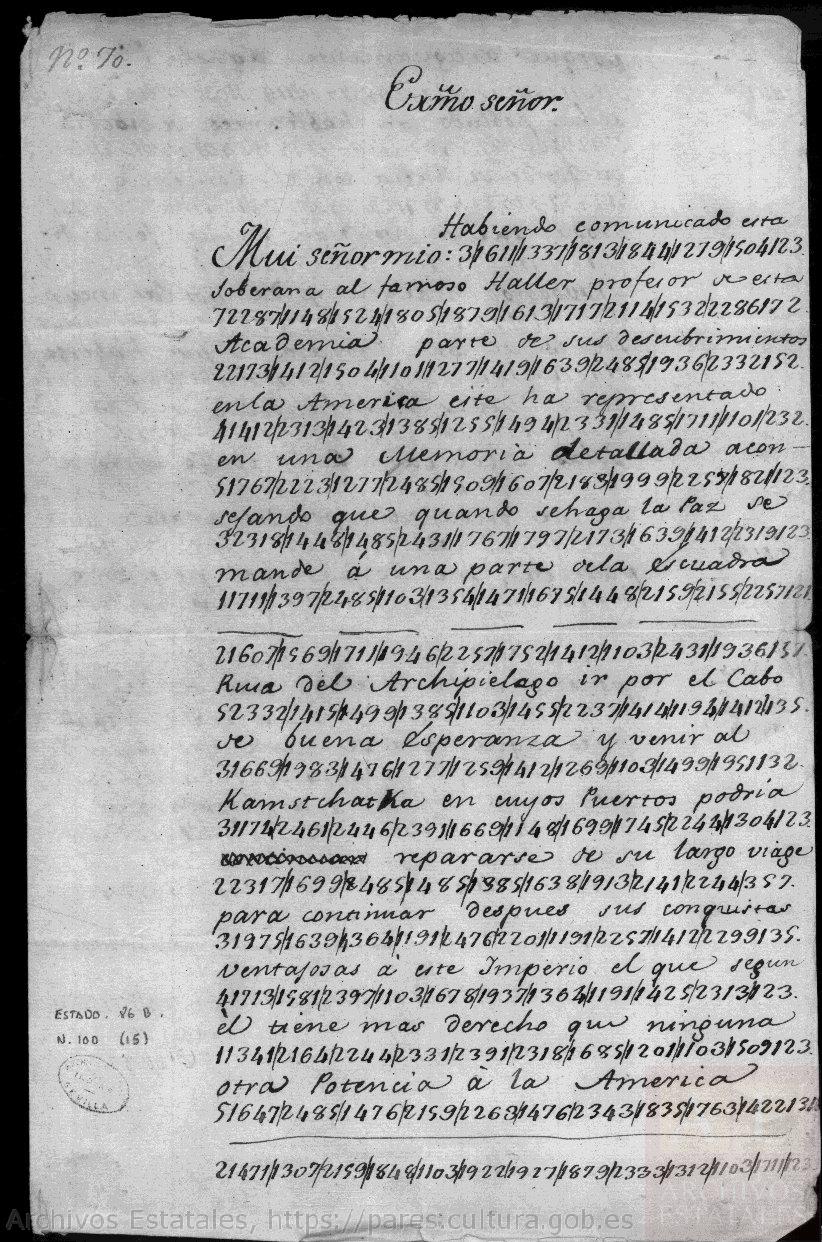 Nº 70.
Exmo señor.
Habiendo comunicado esta
Mui señor mio: 31611/1337/1813/1844/1279/1504/123.
Soberana al famoso Haller profesor de esta
72287/1148/1524/1805/1879/1613/1717/2114/1532/2286172.
Academia parte de sus descubrimientos
22173/1412/1504/1101/1277/1419/1639/2485/1936/2332152.
en la America este ha representado
41412/2313/1423/1385/1255/1494/2331/1485/1711/1101/232.
en una Memoria detallada acon-
51767/2223/1277/2485/1509/1607/2183/1999/2257/1821/123.
sejando que quando se haga la Paz se
32318/1448/1485/2431/1767/1797/2173/1639/1412/2319123
mande á una parte dela escuadra
11711/1397/2485/1103/1354/1471/1675/1448/2159/2155/2257/121
21607/1569/1711/1946/2257/1752/1412/1103/2431/1936137.
Rusa del Archipielago ir por el Cabo
52332/1415/1499/1385/1103/1455/2237/1414/1194/1412/135.
de buena Esperanza y venir al
31669/1983/1476/1277/1259/1412/1269/1103/1499/1951132.
Kamstchatka en cuyos Puertos podria
31174/2461/2446/2391/1669/1148/1699/1745/2244/1304/123
repararse de su largo viage
22317/1699/2485/1485/1385/1638/1913/2141/2244/357.
para continuar despues sus conquistas
31975/1639/1364/1191/2476/2201/1191/2257/1412/2299135.
ventajosas à este Imperio el que segun
41713/1581/2397/1103/1678/1937/1364/1191/1425/2313/123.
èl tiene mas derecho que ninguna
11341/2164/2244/2331/2391/2318/1685/1201/1103/1509123
otra Potencia à la America
51647/2485/1476/2159/2263/1476/2343/1835/1763/1422
21471/1307/2159/1848/1103/1922/1927/1879/2333/1312/1103/1711/123
ESTADO. 86 B.
N. 100 (15)
SEVILLA
Archivos Estatales, https://pares.cultura.gob.es
ARCHIVOS
ESTATALES